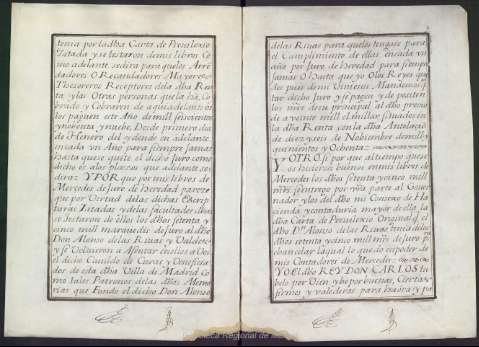 tenia por la dha Carta de Preuilexio
Citada y se testaron demis libros Co
mo adelante sedira para queles Arre
dadores, O Recaudadores Mayores
Thezoreros Receptores dela dha Ren
ta y las Otras personas que la ha
y Cobraren de aqui adelante os
los paguen este Año de mill seiscientos
y nouenta y nueue, Desde primero dia
de Henero del y dende en adelante
encada vn Año para siempre Jamas
hasta que se quite el dicho Juro como
dicho es alos plazos que adelante se
dira: Y POR que por mis libros de
Mercedes de Juro de heredad parece
que por Virtud delas dichas Escrip
turas Citadas y delas facultades
se testaron de ellos los dhos setenta y
cinco mill marauedis de Juro al dho
Don Alonso delas Riuas y Valdes
y se Voluieron a Asentar en ellos a Vos
el dicho Cauildo de Curas y Benefizia
dos de esta dha Villa de Madrid Co
mo tales Patronos delas dhas Memo
rias que Fundo el dicho Don Alonso
delas Riuas para que los tengais para
el Cumplimiento de ellas encada vn
año por Juro de heredad para siempre
Jamas O hasta que yo Olos Reyes que
des pues de mi Vinieren Mandemos qui
tar dicho Juro y se paguen y de pueden
los mrs de su principal al dho precio
de a veinte mill el millar situados en
la dha Renta con la dha Antelaçion
de diez y seis de Nobiembre de mill y
quinientos y Ochenta:
Y OTROSi por que al tiempo que se
Os hizieron buenos en mis libros de
Mercedes los dhos setenta y cinco mill
mrs se entrego por vra parte al Gouer
nador y los del dho mi Consexo de Ha
cienda y contaduria mayor de ella la
dha Carta de Preuilexio Original q el
dho Dn Alonso delas Riuas tenia delos
dhos setenta y cinco mill mrs de Juro
chancelar la qual le quedo en poder de
mis Contadores de Mercedes
YO El dho REY DON CARLOS tu
belo por Bien y he por buenos, Ciertos
firmes y valederos para haora y pa